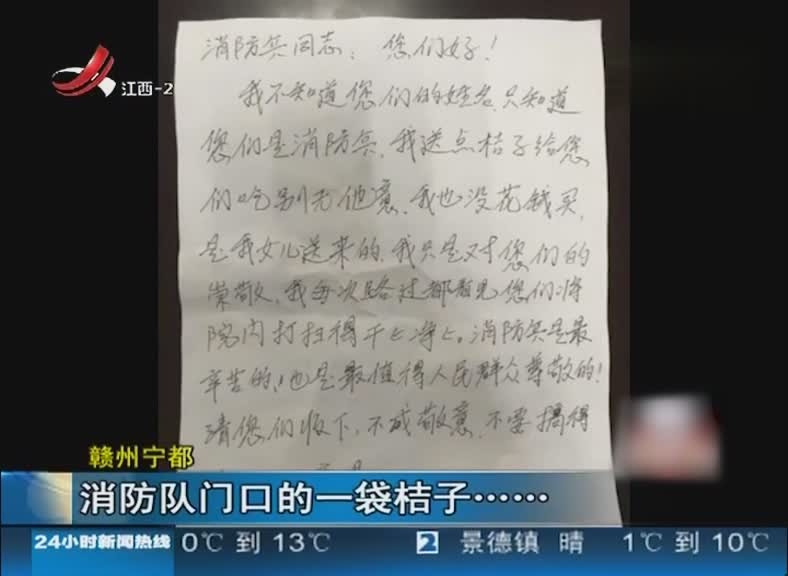 江西-2
消防兵同志: 您们好!
我不知道您们的姓名,只知道
您们是消防兵,我送点桔子给您
们吃别无他意.我也没花钱买,
是我女儿送来的.我只是对您们的
崇敬.我每次路过都看见您们将
院内打扫得干匕净匕。消防兵是最
辛苦的,也是最值得人民群众尊敬的!
请您们收下,不成敬意,不要搞得
赣州宁都
消防队门口的一袋桔子……
24小时新闻热线 0℃ 到 13℃ 2 景德镇 晴 1℃ 到 10℃